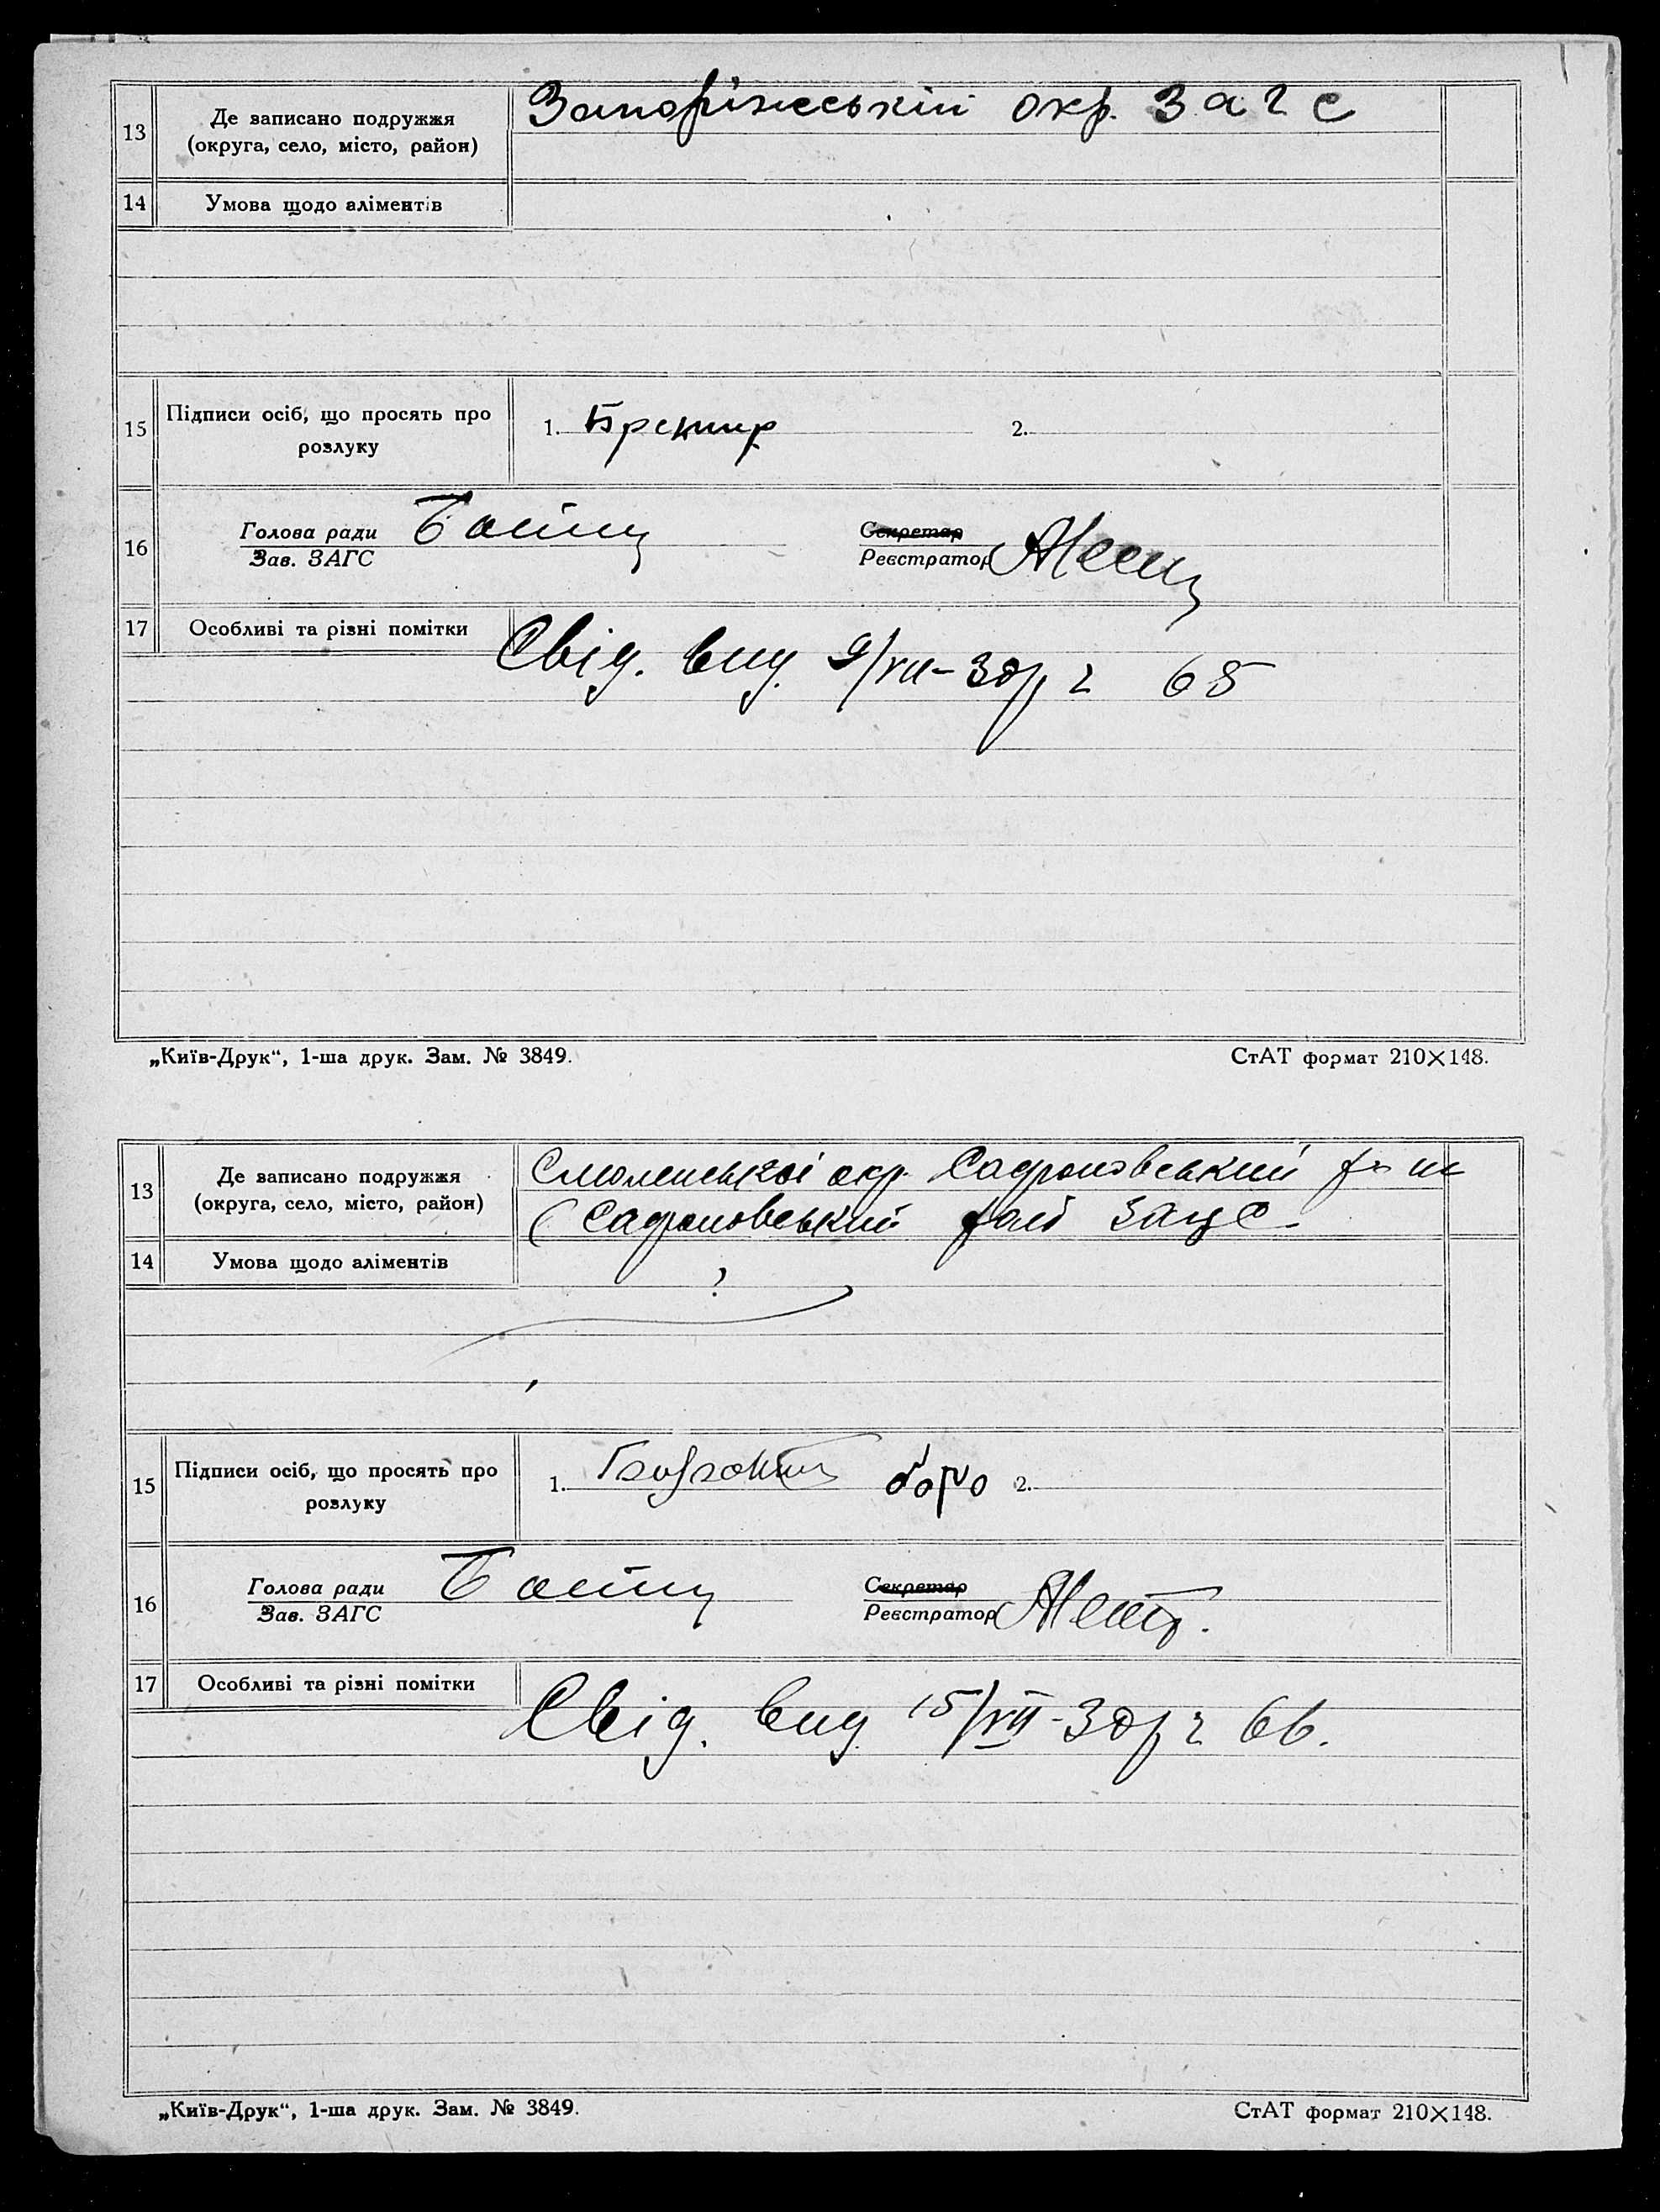 13
Де записано подружжя
(округа, село, місто, район)
Запоріжський окр. Загс
14
Умова щодо аліментів
15
Підписи осіб, що просять про
розлуку
1.
2.
16
Голова ради
Зав. ЗАГС
Секретар
Реєстратор
17
Особливі та різні помітки
Свід. вид. 9/VII-30р. 65
„Київ-Друк“, 1-ша друк. Зам. № 3849.
СтАТ формат 210×148.
13
Де записано подружжя
(округа, село, місто, район)
Смоленської окр.
14
Умова щодо аліментів
?
15
Підписи осіб, що просять про
розлуку
1.
2.
16
Голова ради
Зав. ЗАГС
Секретар
Реєстратор
17
Особливі та різні помітки
Свід. вид 15/VII-30р 66.
„Київ-Друк“, 1-ша друк. Зам. № 3849.
СтАТ формат 210×148.